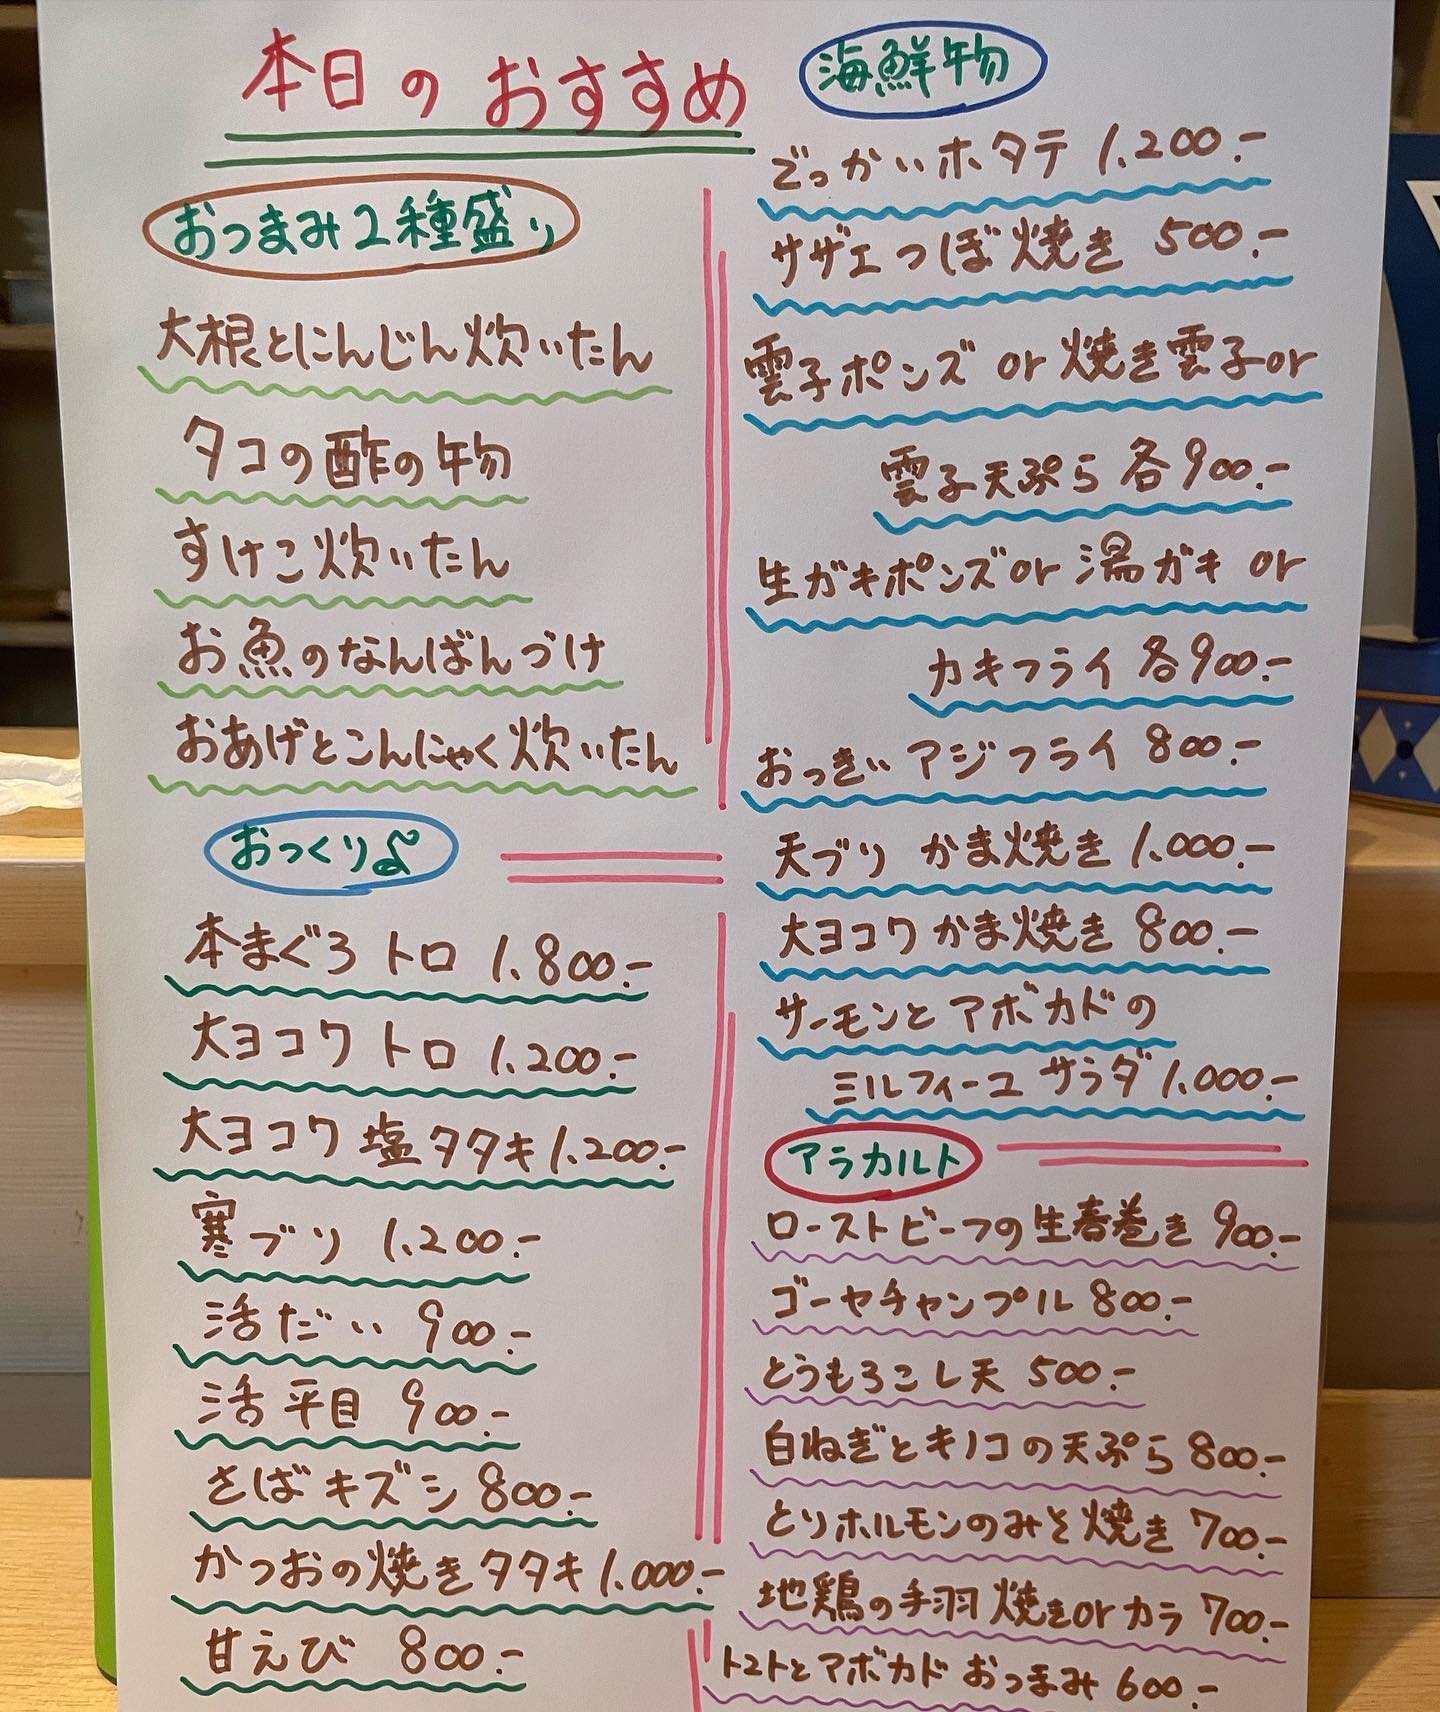 本日のおすすめ
おつまみ2種盛り
大根とにんじん炊いたん
タコの酢の物
すけこ炊いたん
お魚のなんばんづけ
おあげとこんにゃく炊いたん
おつくり
本まぐろ トロ 1,800.-
大ヨコワ トロ 1,200.-
大ヨコワ 塩タタキ 1,200.-
寒ブリ 1,200.-
活だい 900.-
活平目 900.-
さばキズシ 800.-
かつおの焼きタタキ 1,000.-
甘えび 800.-
海鮮物
でっかいホタテ 1,200.-
サザエつぼ焼き 500.-
雲子ポンズ or 焼き雲子 or
雲子天ぷら 各900.-
生ガキポンズ or 湯ガキ or
カキフライ 各900.-
おっきいアジフライ 800.-
天ブリ かま焼き 1,000.-
大ヨコワ かま焼き 800.-
サーモンとアボカドの
ミルフィーユ サラダ 1,000.-
アラカルト
ローストビーフの生春巻き 900.-
ゴーヤチャンプル 800.-
とうもろこし天 500.-
白ねぎとキノコの天ぷら 800.-
とりホルモンのみそ焼き 700.-
地鶏の手羽 焼き or カラ 700.-
トマトとアボカド おつまみ 600.-